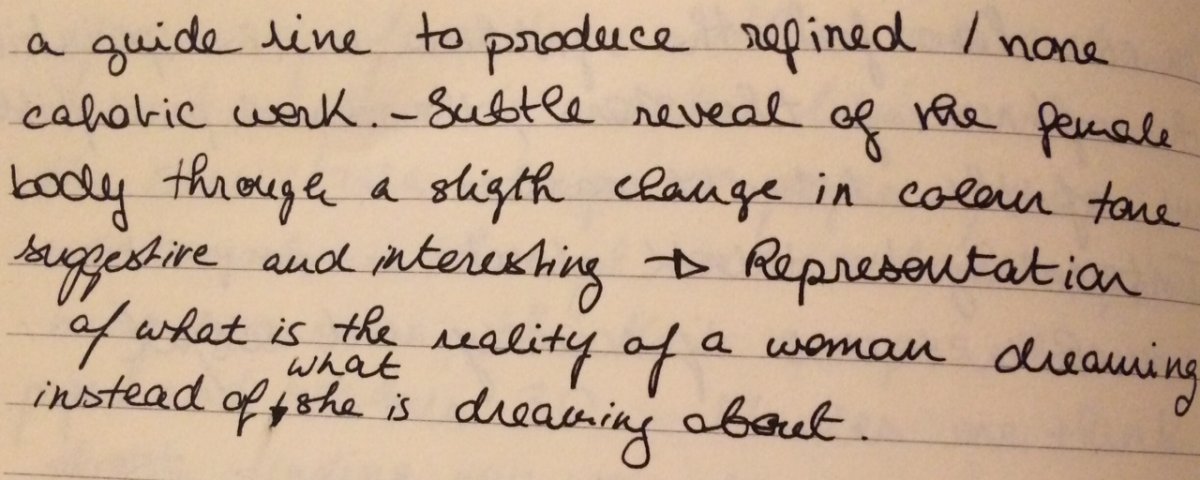 a guide line to produce refined / none
cahotic work. - Subtle reveal of the female
body through a sligth change in colour tone
suggestive and interesting → Representation
of what is the reality of a woman dreaming
what
instead of she is dreaming about.